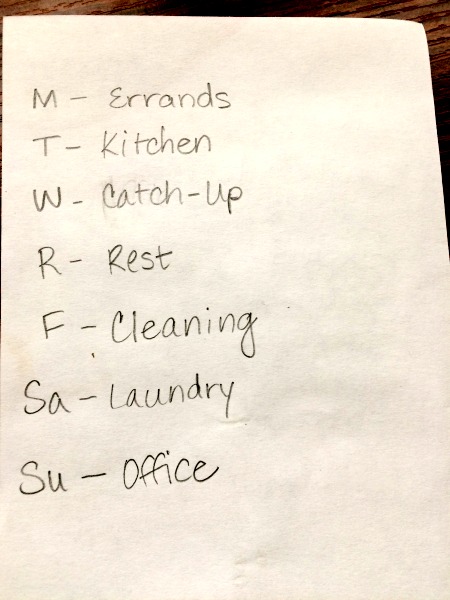 M - Errands
T - Kitchen
W - Catch-Up
R - Rest
F - Cleaning
Sa - Laundry
Su - Office